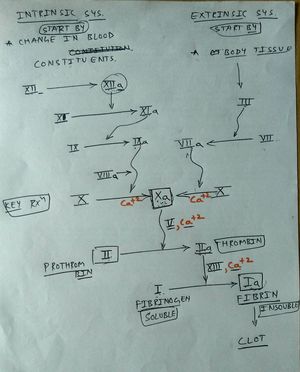 INTRINSIC SYS.
START BY
* CHANGE IN BLOOD
CONSTITUENTS.
EXTRINSIC SYS.
START BY
* BODY TISSUE
XII XIIa
III
XI XIa
IX IXa VIIa VII
VIIIa
KEY RXn X Xa X
Ca+2 Ca+2
V, Ca+2
II IIa THROMBIN
PROTHROM
BIN
XIII, Ca+2
I Ia
FIBRINOGEN FIBRIN
SOLUBLE INSOUBLE
CLOT